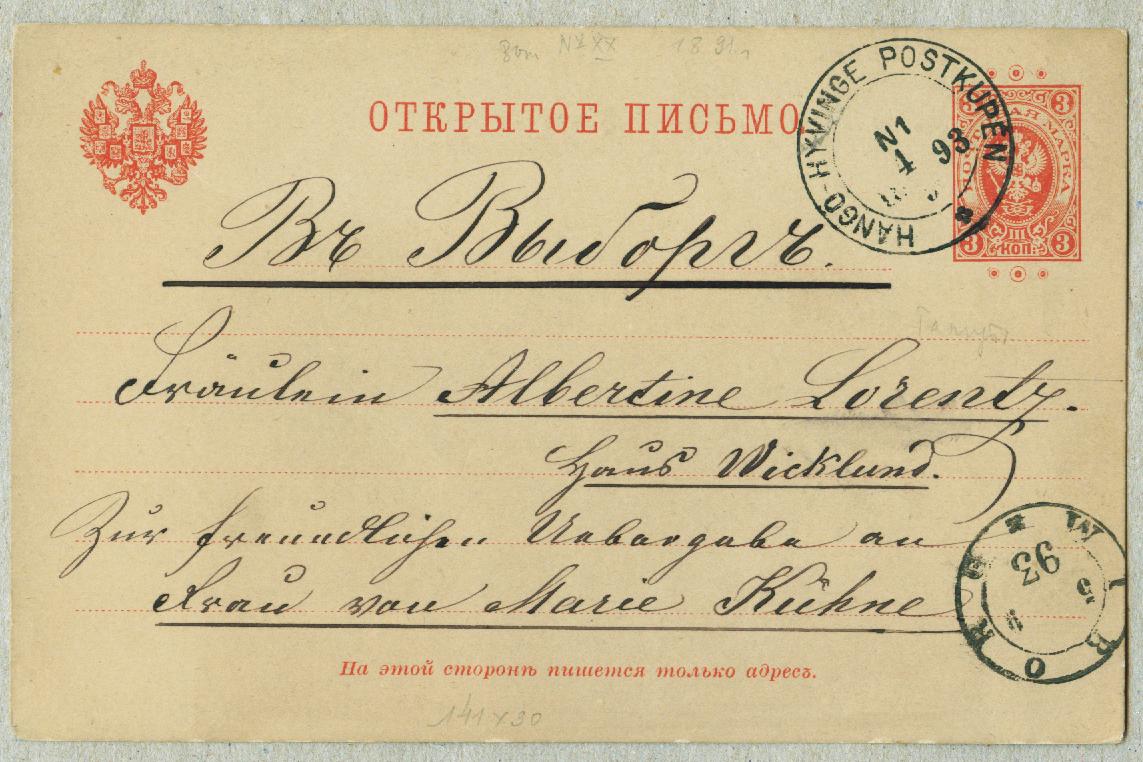 18 91
ОТКРЫТОЕ ПИСЬМО
HANGÖ-HYVINGE POSTKUPÉN
N1
1 93
3 3
ПОЧТОВАЯ МАРКА
III
КОП.
3 3
Въ Выборгъ.
Fräulein Albertine Lorentz.
Haus Wicklund.
Zur freundlichen Uebergabe an
Frau von Marie Kühne
WIBORG
93
На этой сторонѣ пишется только адресъ.
141 x 30